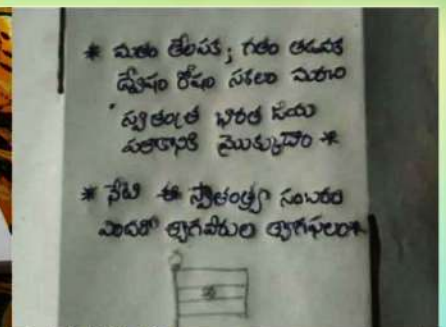 * మతం తేలపక; గతం తడవక
ద్వేషం రోషం సకలం మరచి
స్వతంత్ర భారత జయ
పతాకానికి మొక్కుదాం *
* నేటి ఈ స్వాతంత్ర్య సంబరం
ఎందరో త్యాగవీరుల త్యాగఫలం*